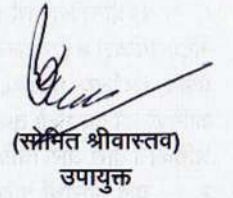 (सोमित श्रीवास्तव)
उपायुक्त